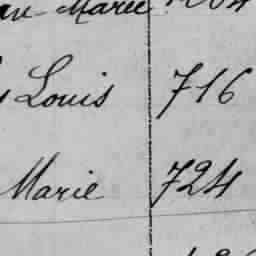 Marie
Louis 716
Marie 724